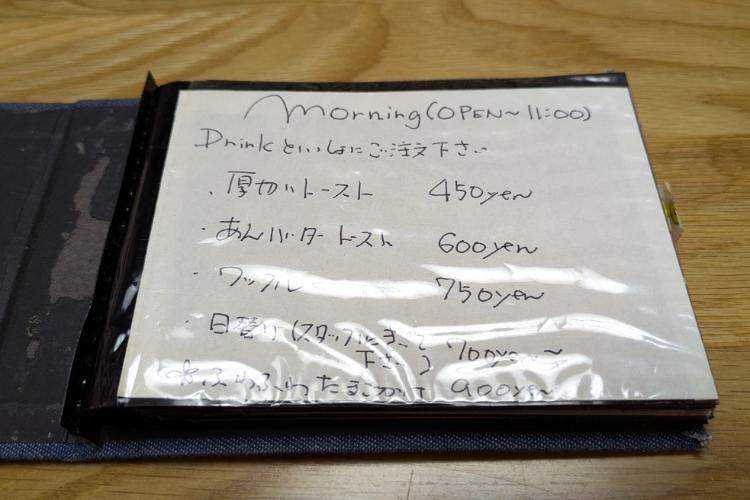 Morning(OPEN~11:00)
Drinkといっしょにご注文下さい
・厚切りトースト 450yen
・あんバタートースト 600yen
・ワッフル 750yen
・日替り(スタッフにきいて下さい) 700yen~
ふわふわたまごサンド 900yen~